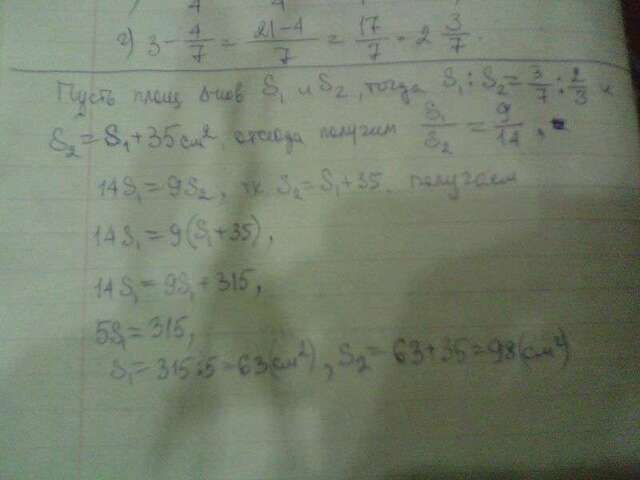 г) 3 - 4/7 = 21-4/7 = 17/7 = 2 3/7.
Пусть площ Δ-ков S₁ и S₂, тогда S₁ : S₂ = 3/7 : 2/3 и
S₂ = S₁ + 35 см² отсюда получим S₁/S₂ = 9/14,
14S₁ = 9S₂, тк S₂ = S₁ + 35. получаем
14S₁ = 9(S₁ + 35),
14S₁ = 9S₁ + 315,
5S₁ = 315,
S₁ = 315 : 5 = 63 (см²), S₂ = 63 + 35 = 98 (см²)